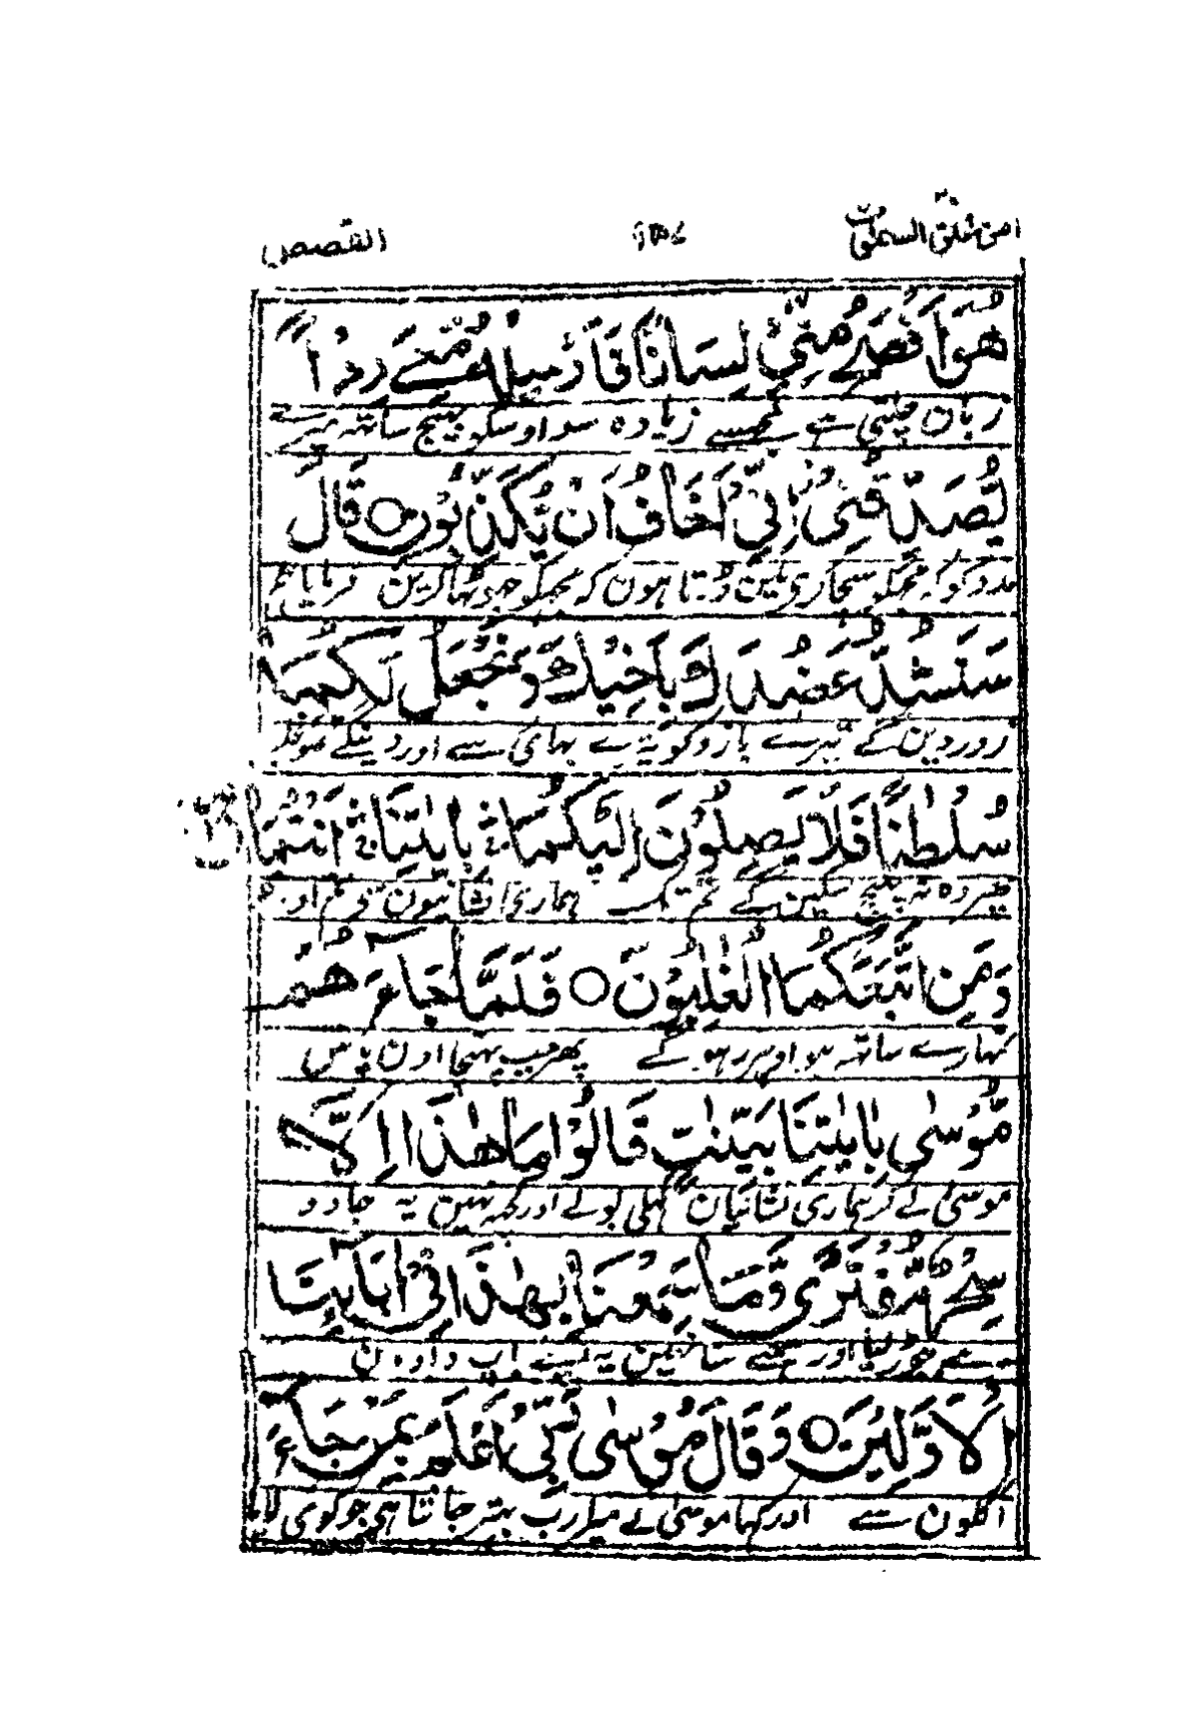 امن خلق السمٰوٰت ۶۳۷ القصص
هُوَ اَفْصَحُ مِنِّیْ لِسَانًا فَاَرْسِلْهُ مَعِیَ رِدْاً
زبان چلتی ہے مجھسے زیادہ سو اوسکو بھیج ساتھ میرے
یُّصَدِّقُنِیْۤ اِنِّیْۤ اَخَافُ اَنْ یُّكَذِّبُوْنِ ○ قَالَ
مدد کو کہ مجکو سچا کری مین ڈرتا ہون کہ مجکو جھوٹھا کرین فرمایا ہم
سَنَشُدُّ عَضُدَكَ بِاَخِیْكَ وَ نَجْعَلُ لَكُمَا
زور دین گے تیرے بازو کو تیرے بھای سے اور دینگے تمکو غلبہ
سُلْطٰنًا فَلَا یَصِلُوْنَ اِلَیْكُمَا بِاٰیٰتِنَا اَنْتُمَا
پھر وہ نہ پہنچ سکین گے تم تک ہماری نشانیون تم اور جو
وَ مَنِ اتَّبَعَكُمَا الْغٰلِبُوْنَ ○ فَلَمَّا جَآءَهُمْ
تمہارے ساتھ ہو اوپر رہو گے پھر جب پہنچا اون پاس
مُّوْسٰی بِاٰیٰتِنَا بَیِّنٰتٍ قَالُوْا مَا هٰذَاۤ اِلَّا
موسیٰ لے کر ہماری نشانیان کھلی بولے اور کچھ نہین یہ جادو
سِحْرٌ مُّفْتَرًی وَّ مَا سَمِعْنَا بِهٰذَا فِیْۤ اٰبَآىِٕنَا
ہے جوڑ لیا اور ہمنے سنا نہین یہ اپنے باپ دادون
الْاَوَّلِیْنَ ○ وَ قَالَ مُوْسٰی رَبِّیْۤ اَعْلَمُ بِمَنْ جَآءَ
اگلون سے اور کہا موسیٰ نے میرا رب بہتر جانتا ہی جو کوی لایا